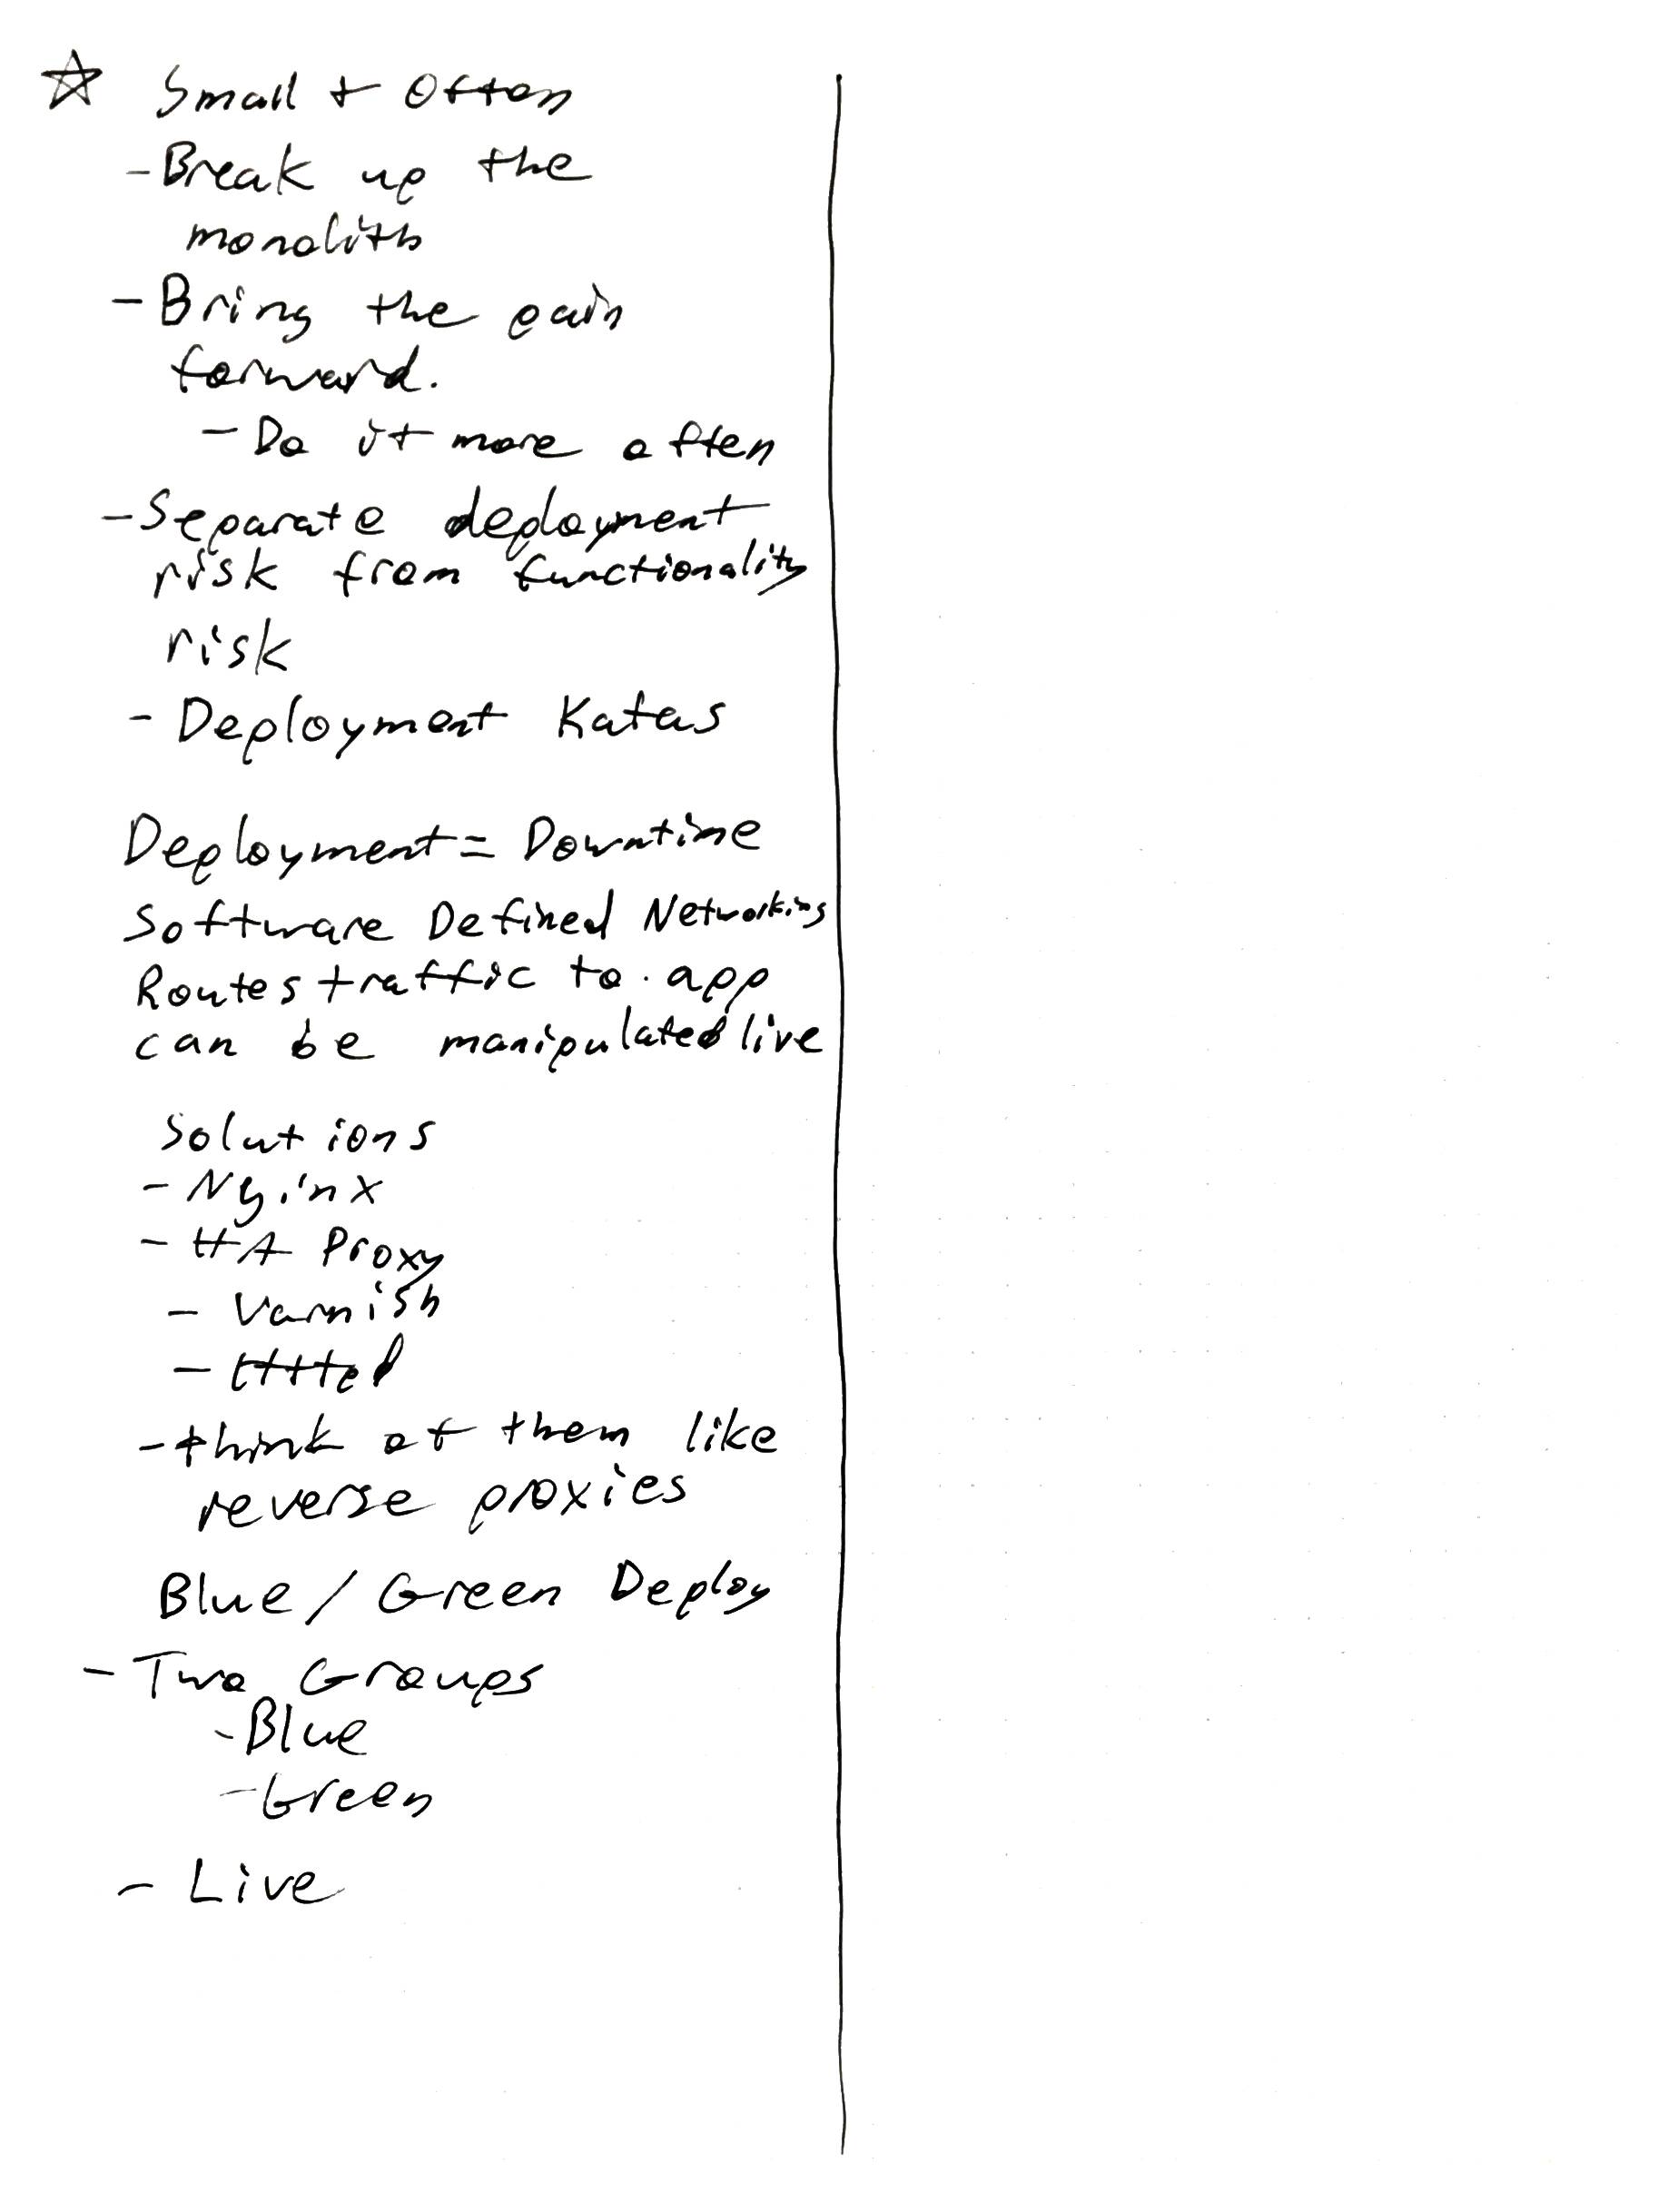 ☆ Small + Often
- Break up the
monolith
- Bring the pain
forward.
- Do it more often
- Separate deployment
risk from functionality
risk
- Deployment Katas
Deployment = Downtime
Software Defined Networking
Routes traffic to app
can be manipulated live
Solutions
- Nginx
- HA Proxy
- Varnish
- Httpd
- think of them like
reverse proxies
Blue / Green Deploy
- Two Groups
- Blue
- Green
- Live